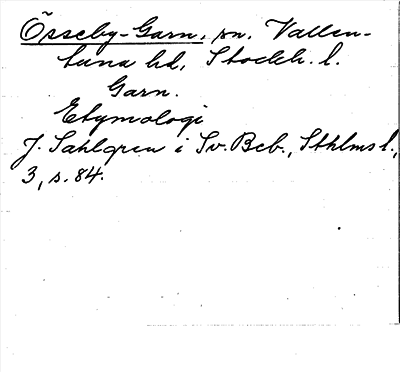 Össeby-Garn, sn. Vallen-
tuna hd, Stockh. l.
Garn.
Etymologi
J. Sahlgren i Sv. Beb., Sthlms l.,
3, s. 84.